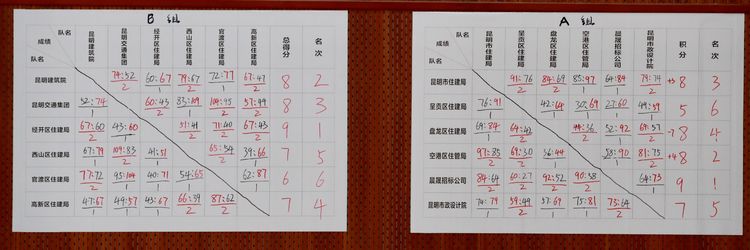 B 组
队名
成绩
队名
昆明建筑院
昆明交通集团
经开区住建局
西山区住建局
官渡区住建局
高新区住建局
总得分
名次
昆明建筑院 74:52 60:67 79:67 72:77 67:47 8 2
2 1 2 1 2
昆明交通集团 52:74 60:43 83:109 104:95 57:49 8 3
1 2 1 2 2
经开区住建局 67:60 43:60 51:41 71:40 67:43 9 1
2 1 2 2 2
西山区住建局 67:79 109:83 41:51 65:54 39:66 7 5
1 2 1 2 1
官渡区住建局 77:72 95:104 40:71 54:65 62:87 6 6
2 1 1 1 1
高新区住建局 47:67 49:57 43:67 66:39 87:62 7 4
1 1 1 2 2
A 组
队名
成绩
队名
昆明市住建局
呈贡区住建局
盘龙区住建局
空港区住管局
晨晟招标公司
昆明市政设计院
积分
名次
昆明市住建局 91:76 84:69 85:97 64:84 79:74 8 3
2 2 1 1 2
呈贡区住建局 76:91 42:64 30:69 27:60 49:59 5 6
1 1 1 1 1
盘龙区住建局 69:84 64:42 44:36 52:92 69:57 8 4
1 2 2 1 2
空港区住管局 97:85 69:30 36:44 58:90 81:75 8 2
2 2 1 1 2
晨晟招标公司 84:64 60:27 92:52 90:58 64:73 9 1
2 2 2 2 1
昆明市政设计院 74:79 59:49 57:69 75:81 73:64 7 5
1 2 1 1 2